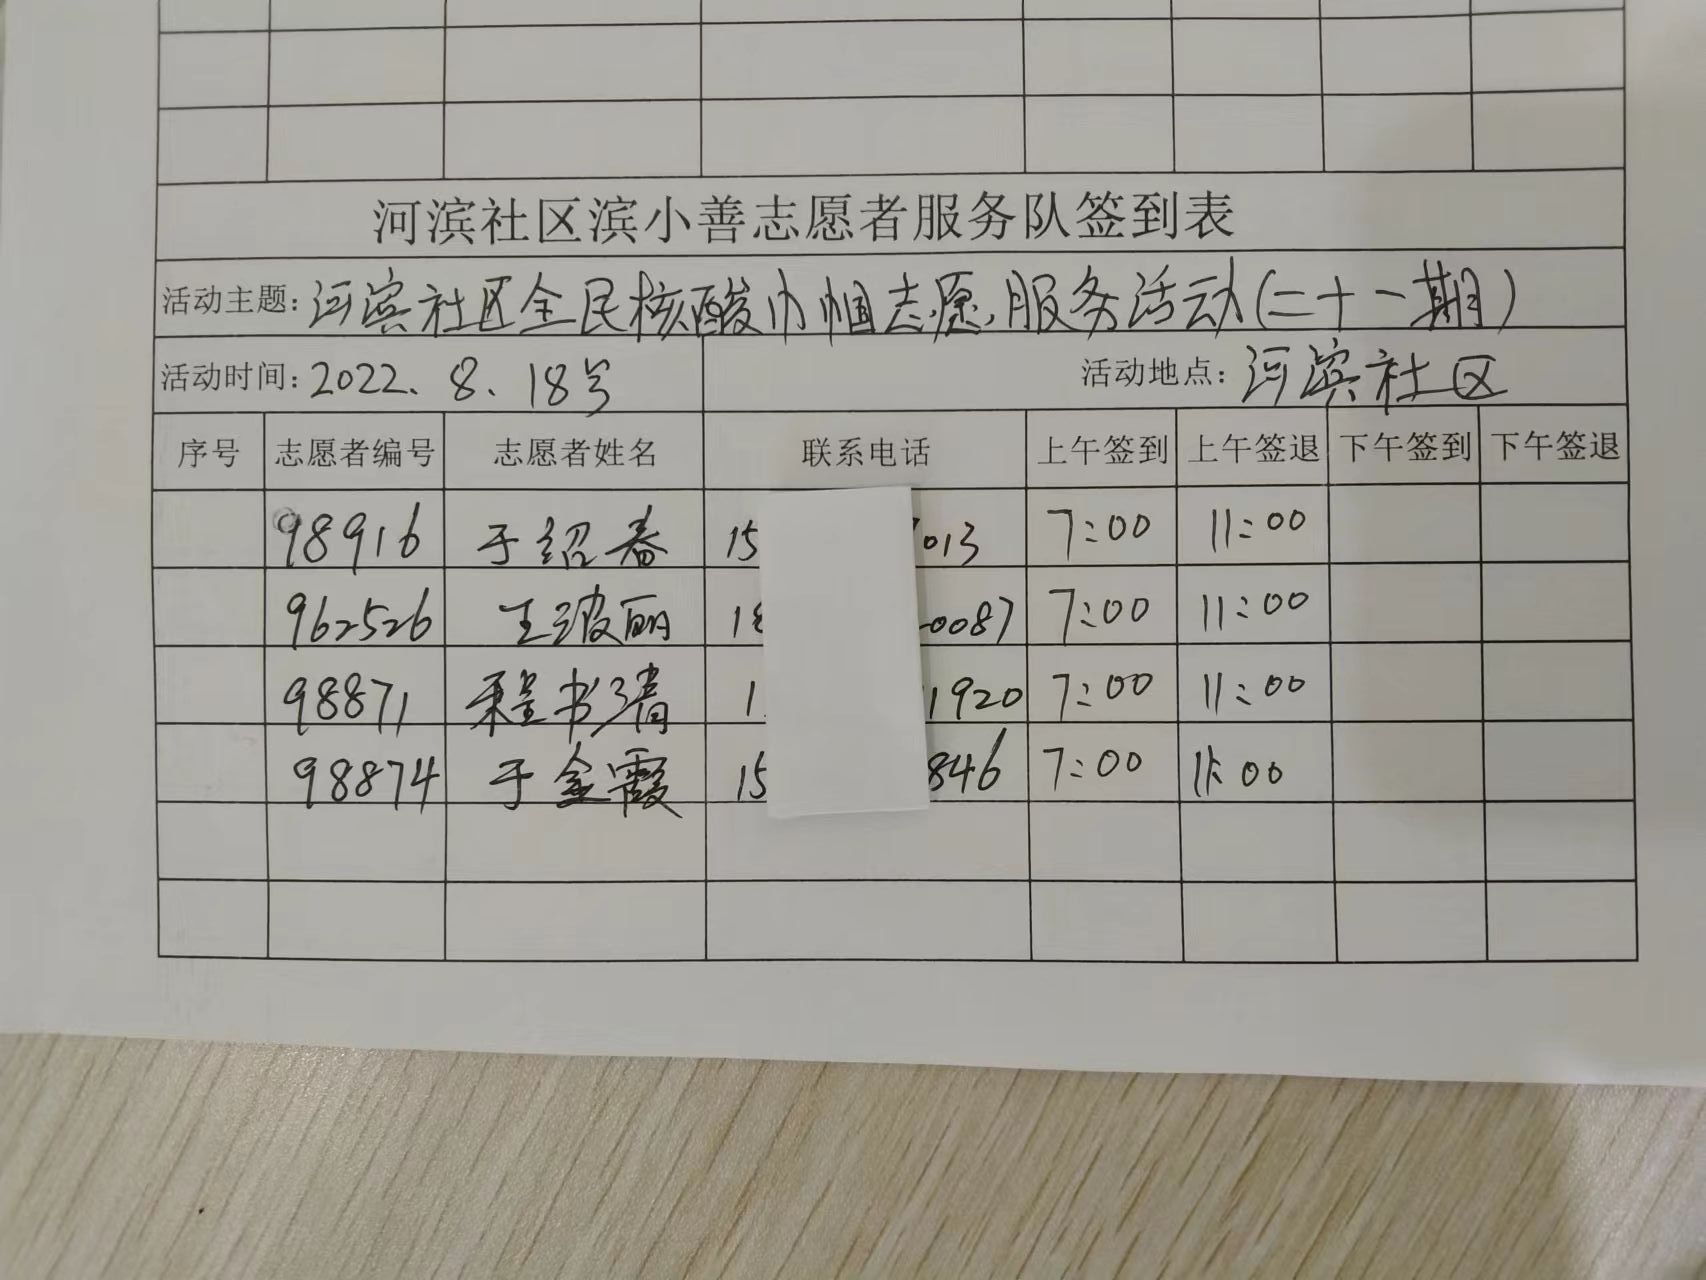 河滨社区滨小善志愿者服务队签到表
活动主题：河滨社区全民核酸巾帼志愿服务活动(二十一期)
活动时间：2022.8.18号 活动地点：河滨社区
序号 志愿者编号 志愿者姓名 联系电话 上午签到 上午签退 下午签到 下午签退
98916 于绍春 15 013 7:00 11:00
962526 王波丽 18 0087 7:00 11:00
98871 程书清 1 1920 7:00 11:00
98874 于金霞 15 846 7:00 11:00